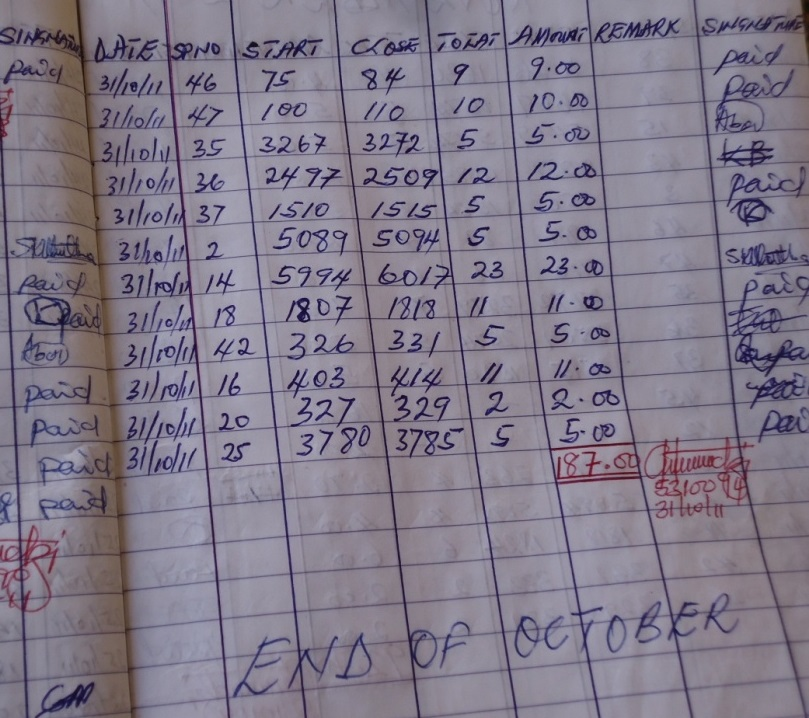 SINSNATURE DATE SPNO START CLOSE TOTAT AMOUNT REMARK SINSNATURE
paid 31/10/11 46 75 84 9 9.00 paid
31/10/11 47 100 110 10 10.00 paid
31/10/11 35 3267 3272 5 5.00
31/10/11 36 2497 2509 12 12.00
31/10/11 37 1510 1515 5 5.00 paid
31/10/11 2 5089 5094 5 5.00
paid 31/10/11 14 5994 6017 23 23.00
paid 31/10/11 18 1807 1818 11 11.00 paid
31/10/11 42 326 331 5 5.00
paid 31/10/11 16 403 414 11 11.00
paid 31/10/11 20 327 329 2 2.00
paid 31/10/11 25 3780 3785 5 5.00 pai
187.00
paid 5310094
31/10/11
END OF OCTOBER